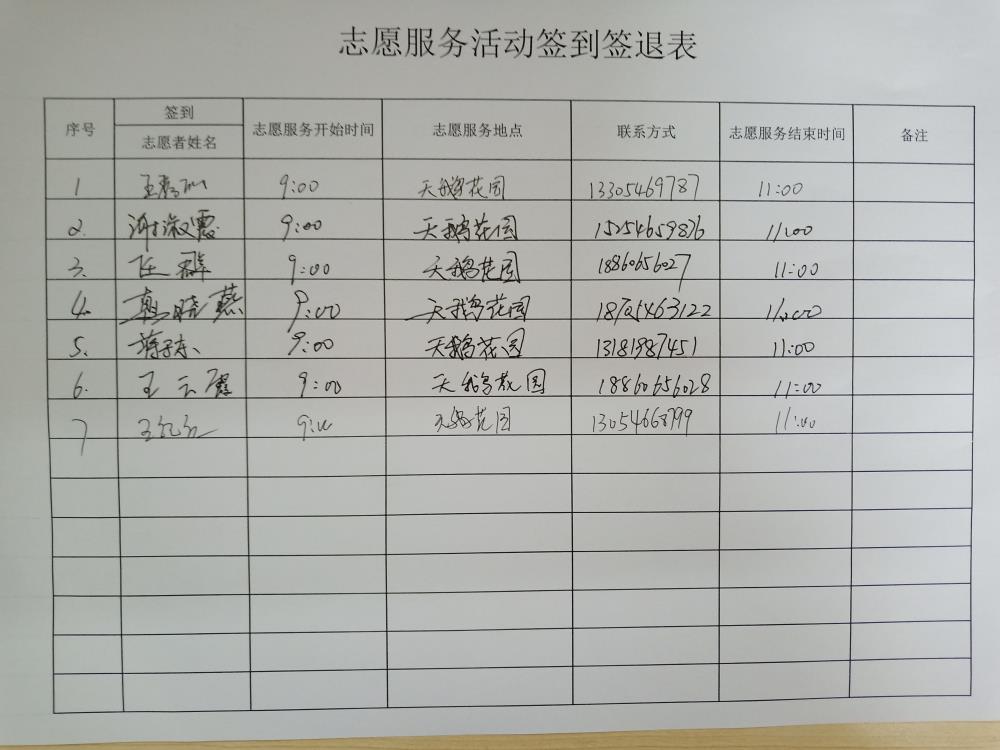 志愿服务活动签到签退表
序号 签到 志愿者姓名 志愿服务开始时间 志愿服务地点 联系方式 志愿服务结束时间 备注
1 9:00 天鹅花园 13305469787 11:00
2. 9:00 天鹅花园 15254659876 11:00
3. 任群 9:00 天鹅花园 18860656027 11:00
4. 晓燕 9:00 天鹅花园 11:00
5. 9:00 天鹅花园 13181987451 11:00
6. 王云霞 9:00 天鹅花园 18860656028 11:00
7 9:00 天鹅花园 13054668799 11:00